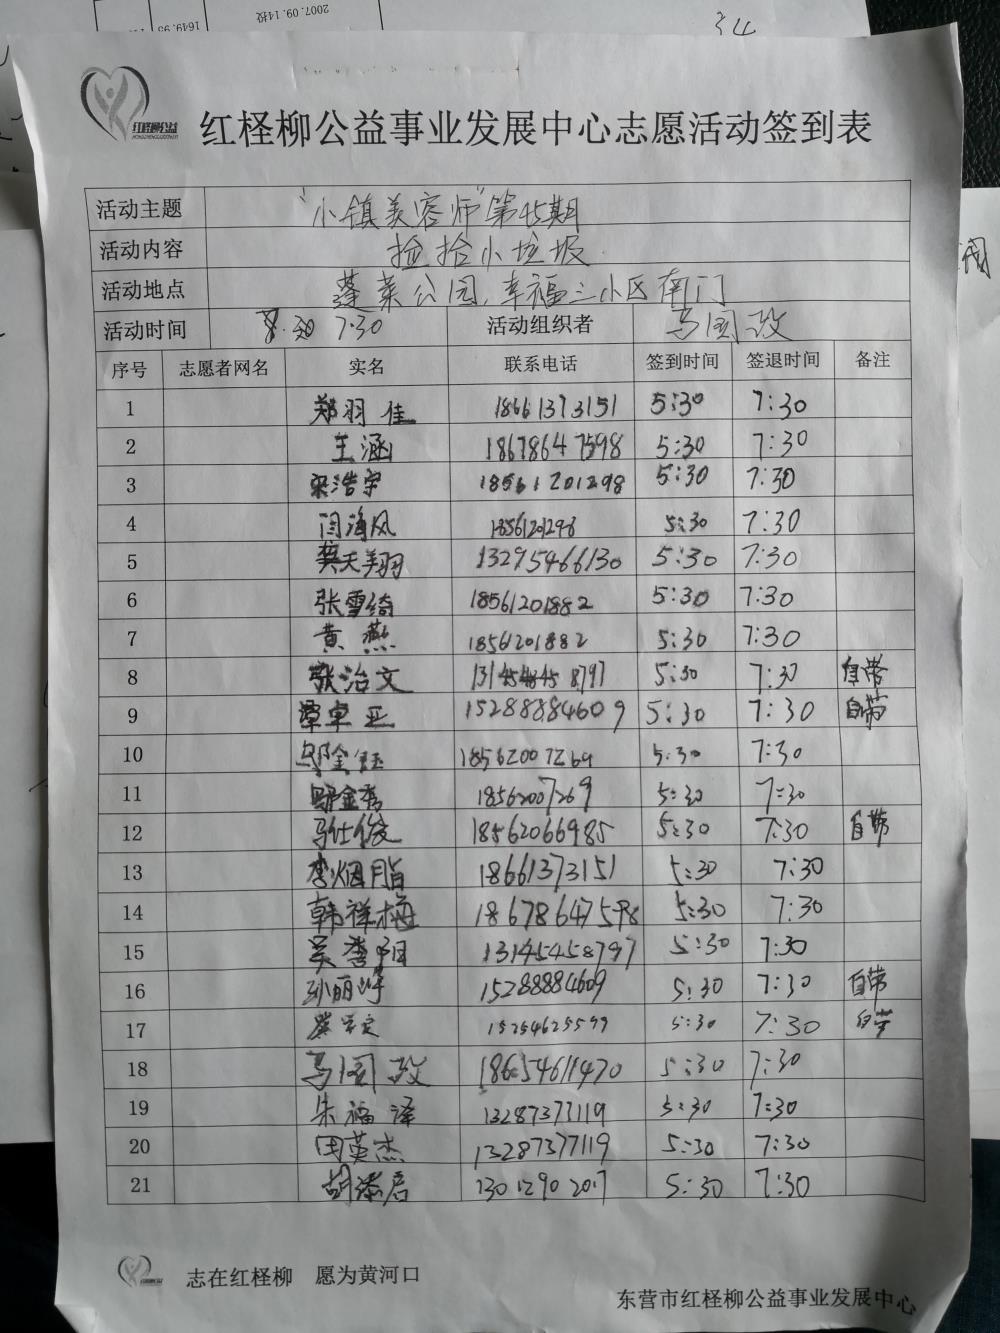 2007.09.14投
1649.95
34
红柽柳公益
红柽柳公益事业发展中心志愿活动签到表
活动主题 "小镇美容师"第45期
活动内容 捡拾小垃圾
活动地点 蓬莱公园,幸福三小区南门
活动时间 7:30 活动组织者 马国政
序号 志愿者网名 实名 联系电话 签到时间 签退时间 备注
1 郑羽佳 18661373151 5:30 7:30
2 王涵 18678647598 5:30 7:30
3 梁浩宇 18561201298 5:30 7:30
4 闫海风 18561201298 5:30 7:30
5 樊天翔 13295466130 5:30 7:30
6 张雪绮 18561201882 5:30 7:30
7 黄燕 18561201882 5:30 7:30
8 张治文 5:30 7:30 自带
9 谭卓亚 15288884609 5:30 7:30 自带
10 18562007269 5:30 7:30
11 18562007269 5:30 7:30
12 马仕俊 18562066985 5:30 7:30 自带
13 李烟脂 18661373151 5:30 7:30
14 韩祥梅 18678647598 5:30 7:30
15 吴春阳 13145458797 5:30 7:30
16 孙丽婷 15288884609 5:30 7:30 自带
17 15254625599 5:30 7:30 自带
18 马国政 18654611470 5:30 7:30
19 朱福泽 13287377119 5:30 7:30
20 田英杰 13287377119 5:30 7:30
21 胡添启 13012902017 5:30 7:30
志在红柽柳 愿为黄河口
东营市红柽柳公益事业发展中心